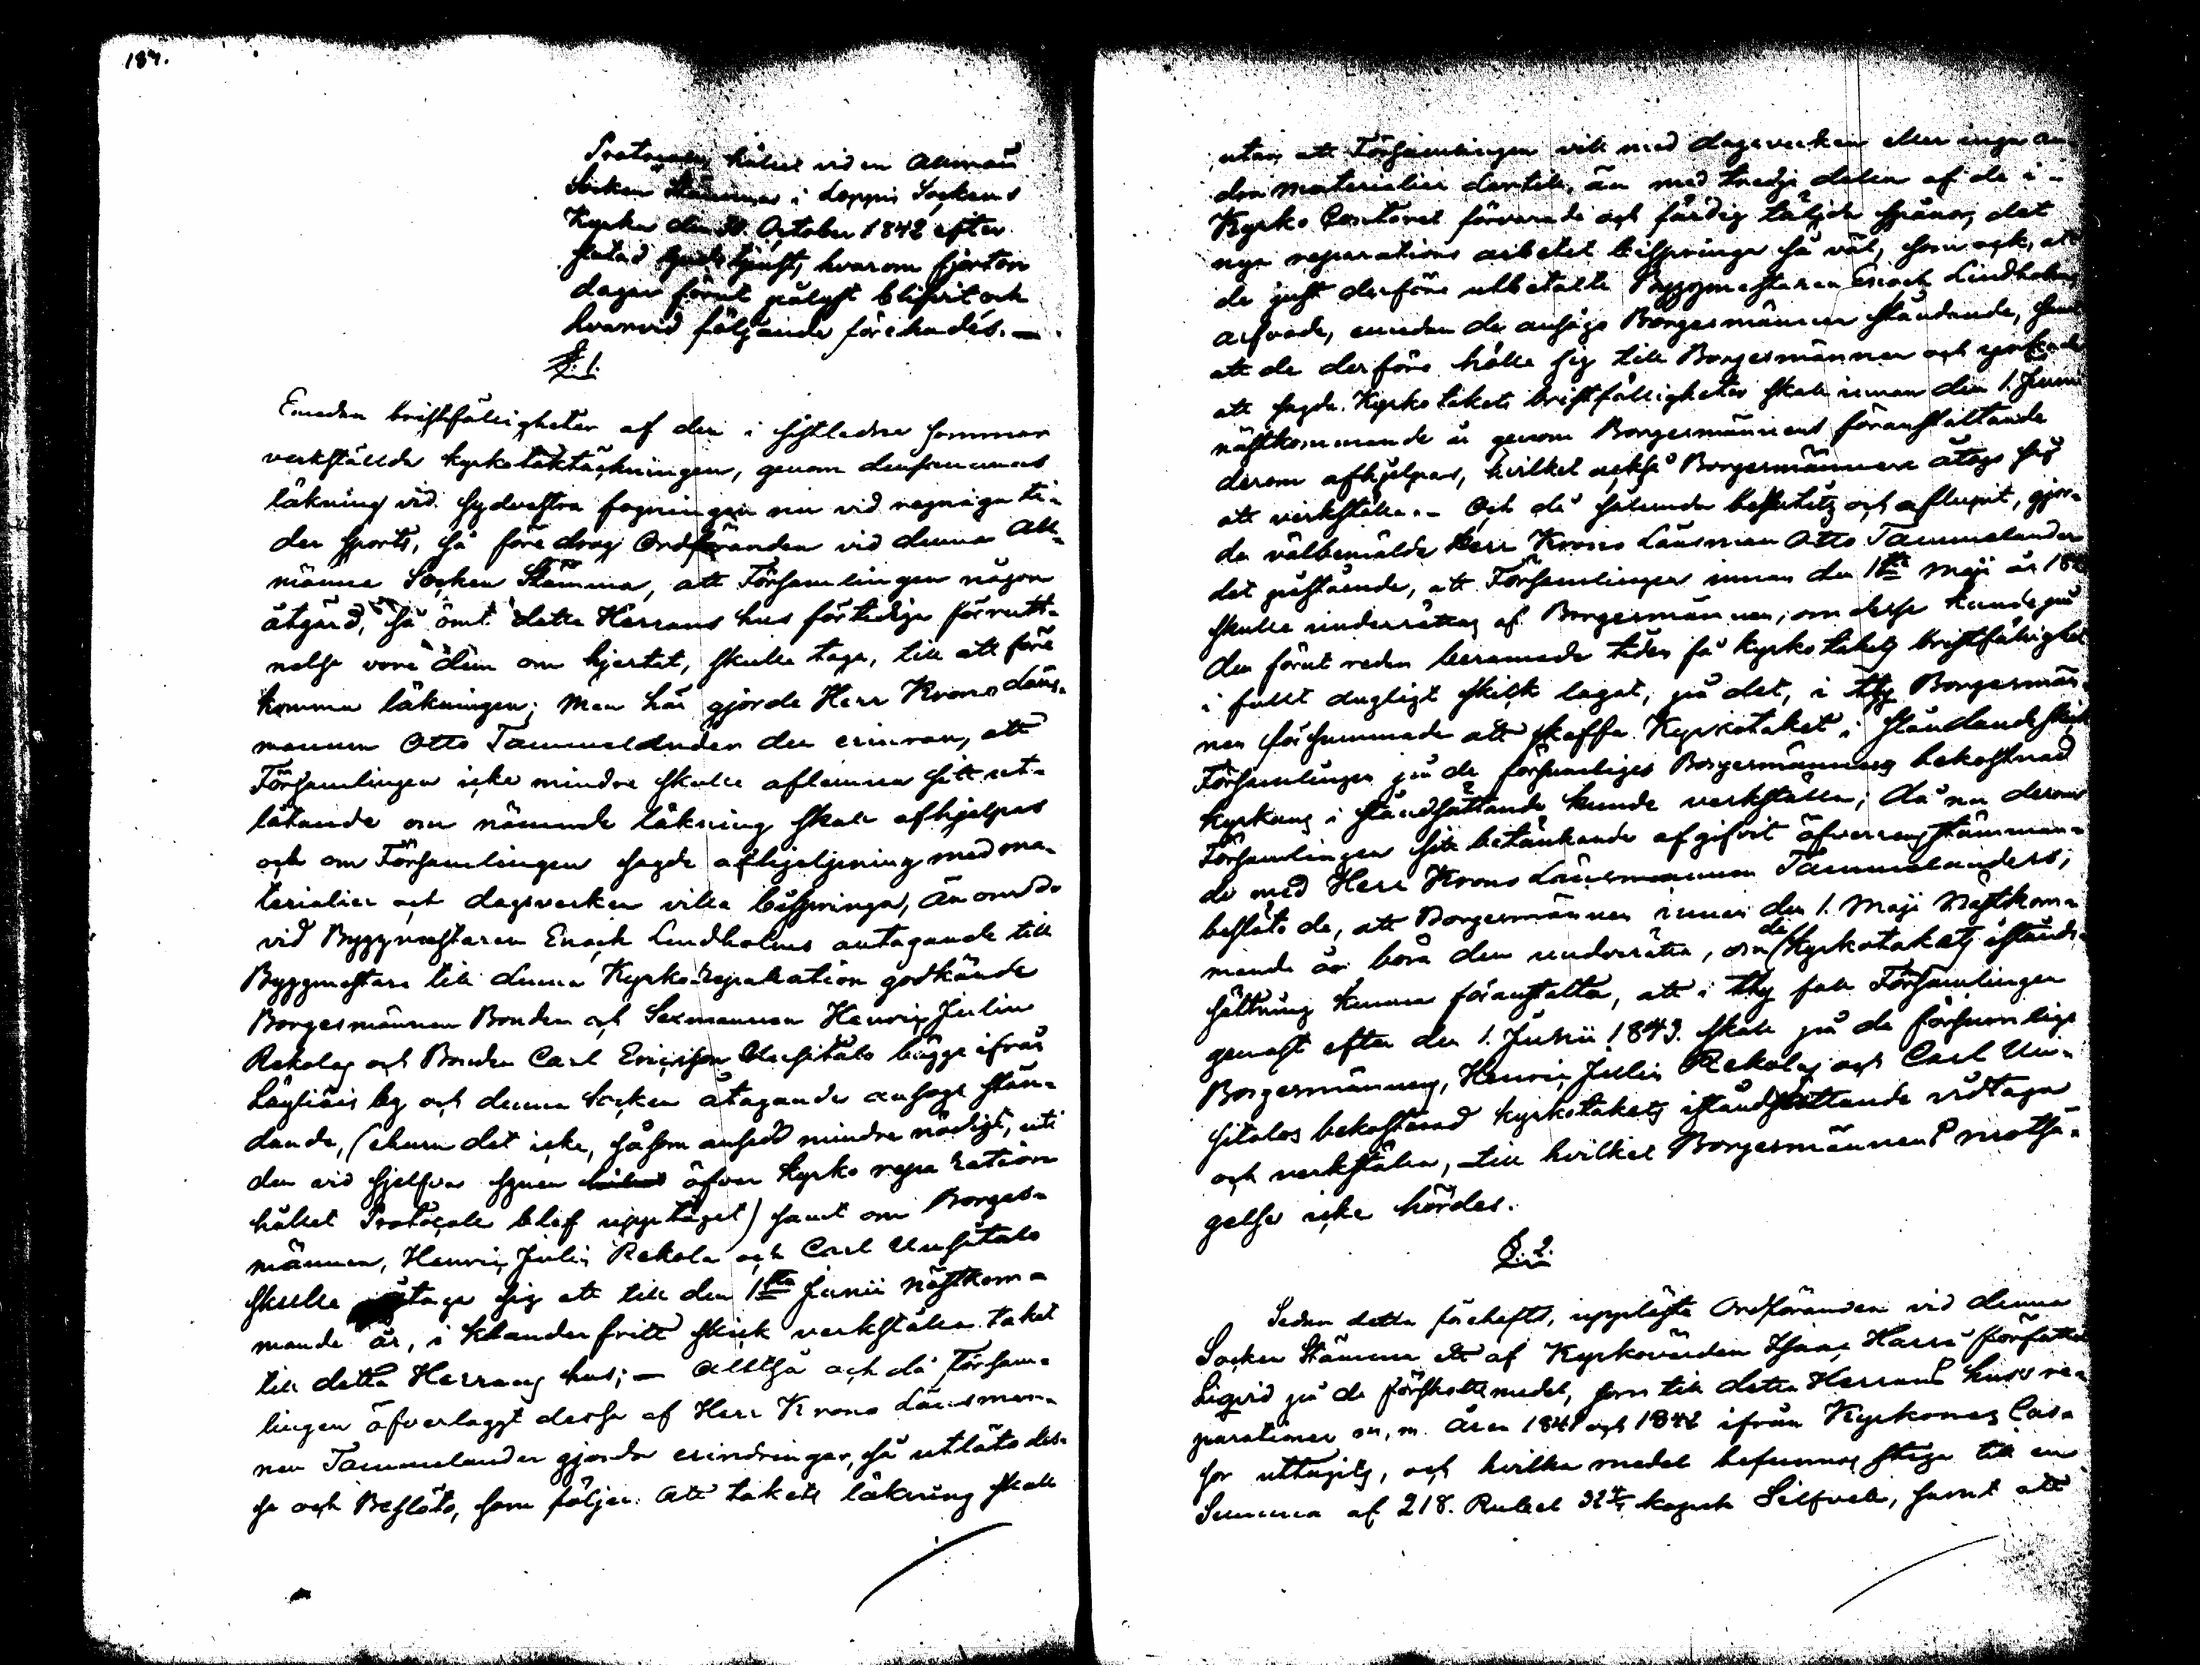 184.
Protocoll, hållet vid en Allmän
Socken Stämma i Loppis Sockens
Kyrka den 30. October 1842 efter
slutad Gudstjenst, hvarom fjorton
dagar förut pålyst blifvit och
hvarvid följande förehades. —
§. 1.
Emedan bristfälligheter af den i sistledne sommar
verkställda kyrkotaktäckningen, genom densammas
läkning vid sydvestra fogningen nu vid regniga ti-
der sports, så före drog Ordföranden vid denna All-
männa Socken Stämma, att Församlingen någon
åtgärd, så ömt detta Herrans hus förtidiga förrutt-
nelse vore dem om hjertat, skulle taga, till att före
komma läkningen; Men här gjorde Herr Krono Läns-
mannen Otto Tammelander den erinran, att
Församlingen icke mindre skulle aflemna sitt ut-
låtande om nämnde läkning skall afhjelpas
och om Församlingen sagde afhjelpning med ma-
terialier och dagsverken ville bispringa, än om de
vid Byggmästaren Enoch Lindholms antagande till
Byggmästare till denna Kyrko reparation godkände
Borgesmännen Bonden och Sexmannen Henric Julin
Rekola och Bonden Carl Ericsson Uusitalo bägge ifrån
Läyliäis by och denna Socken åtagande ansågo stån-
dande, (ehuru det icke, såsom ansedd mindre nödigt, uti
den vid sjelfva synen öfver kyrko reparation
hållet Protocoll blef upptaget) samt om Borges-
männen, Henric Julin Rekola och Carl Uusitalo
skulle åtaga sig att till den 1sta Junii nästkom-
mande år, i klanderfritt skick verkställa taket
till detta Herrans hus; — Alltså och då Försam-
lingen öfverlaggt dessa af Herr Krono Länsman-
nen Tammelander gjorda erindringar, så utläto des-
se och Beslöto, som följer: Att takets läkning skall
utan att Församlingen vill med dagsverken eller inga an-
dra materialier dertill, än med tredje delen af de i
Kyrko Contoret förvarade och färdig täljda spånor, det
nya reparations arbetet bispringa så väl, som ock, att
de just derföre utbetalte Byggmästaren Enoch Lindholms
arfvode, emedan de ansågo Borgesmännen ståndande, samt
att de derföre hålla sig till Borgesmännen och yrkade
att sagde Kyrko takets bristfälligheter skall innan den 1. Junii
nästkommande år genom Borgesmännens föranstaltande
derom afhjelpas, hvilket också Borgesmännen åtogo sig
att verkställa. – Och då sålunda beslutits och aflupit, gjor-
de välbemälde Herr Krono Länsman Otto Tammelander
det påstående, att Församlingen innan den 1ste Maji år 18
skulle underrättas af Borgesmännen, om desse kunde på
den förut redan beramade tiden få kyrko takets bristfällighet
i fullt dugligt skick lagat, på det, i thy Borgesmän-
nen försummade att skaffa Kyrkotaket i ståndande skick
Församlingen på de försumliges Borgesmännens bekostnad
kyrkans i ståndsättande kunde verkställa; Då nu derom
Församlingen sitt betänkande afgifvit öfverensstämman-
de med Herr Krono Länsmannen Tammelanders;
beslöto de, att Borgesmännen innan den 1. Maji Nästkom-
mande år böra dem underrätta, om de Kyrkotakets iständ-
sättning kunna föranstalta, att i thy fall Församlingen
genast efter den 1. Junii 1843. skall på de försumlige
Borgesmännens, Henric Julin Rekolas och Carl Uu-
sitalos bekostnad kyrkotakets iståndsättande vidtaga
och verkställa, till hvilket Borgesmännens motsä-
gelse icke hördes.
§. 2.
Sedan detta förehafts, uppläste Ordföranden vid denna
Socken Stämma ett af Kyrkovärden Isaac Harri författat
Liqvid på de förskottsmedel, som till detta Herrans hus re-
parationer m. m. åren 1841 och 1842 ifrån Kyrkones Cas-
sor uttagits, och hvilka medel befunnos stiga till en
Summa af 218. Rubel kopek Silfver, samt att